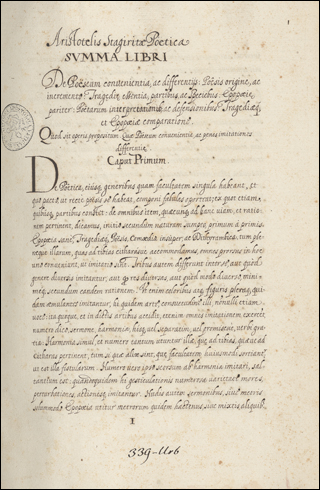 1
Aristotelis Stagiritæ Poetica
SVMMA LIBRI
De Poeseωn convenientia, ac differentijs: Poësis origine, ac
incremento: Tragœdiæ essentia, partibus, ac speciebus: Epopœiæ
pariter: Poëtarum interpretationib. ac defensionibus: Tragœdiæq,
et Epopœiæ comparatione.
Quod sit operis propositum: Quæ Poëseωn convenientia, ac penes imitationes
differentiæ.
Caput Primum.
De Poëtica, eiusq, generibus quam facultatem singula habeant, et
quo pacto ut recte poësis se habeat, componi fabulas oporteat: ex quot etiam,
quibusq, partibus constet: de omnibus item, quæcunq, ad hanc viam, et ratio
nem pertinent, dicamus, initio secundum naturam sumpto primum a primis.
Epopœia sane, Tragœdiaq, Poësis, Comœdia insuper, ac Dithyrambica: tum ple
raque illarum, quæ ad tibias citharasve accommodamus, omnes prorsus in hoc
uno conveniunt, ut imitatio sint. Tribus autem differunt inter se, aut quod
genere diversis imitantur; aut quod res diversas, aut quod modo diverso, mini
meq, secundum eandem rationem. Ut enim coloribus atq, figuris plerosq, qui
dam æmulantes imitantur, hi quidem arte, consuetudine illi, nonnulli etiam
voce: ita quoque, et in dictis artibus accidit, etenim omnes imitationem exercent
numero dico, sermone, harmonia, hisq, vel separatim, vel permixtis, verbi gra
tia: Harmonia simul, et numero tantum utuntur illæ, quæ ad tibias, quæve ad
citharas pertinent, tum si quæ aliæ sunt, quæ facultatem huiusmodi sortiantur,
ut est illa fistularum. Numero vero ipso seorsum ab harmonia imitari, sal
tantium est: quandoquidem hi gesticulationis numerosa varietate mores,
perturbationes, actionesq, imitantur. Nudis autem sermonibus, sive metris
solummodo Epopœia utitur metrorum quidem hactenus sive mixtis aliquib.
I
339-Urb